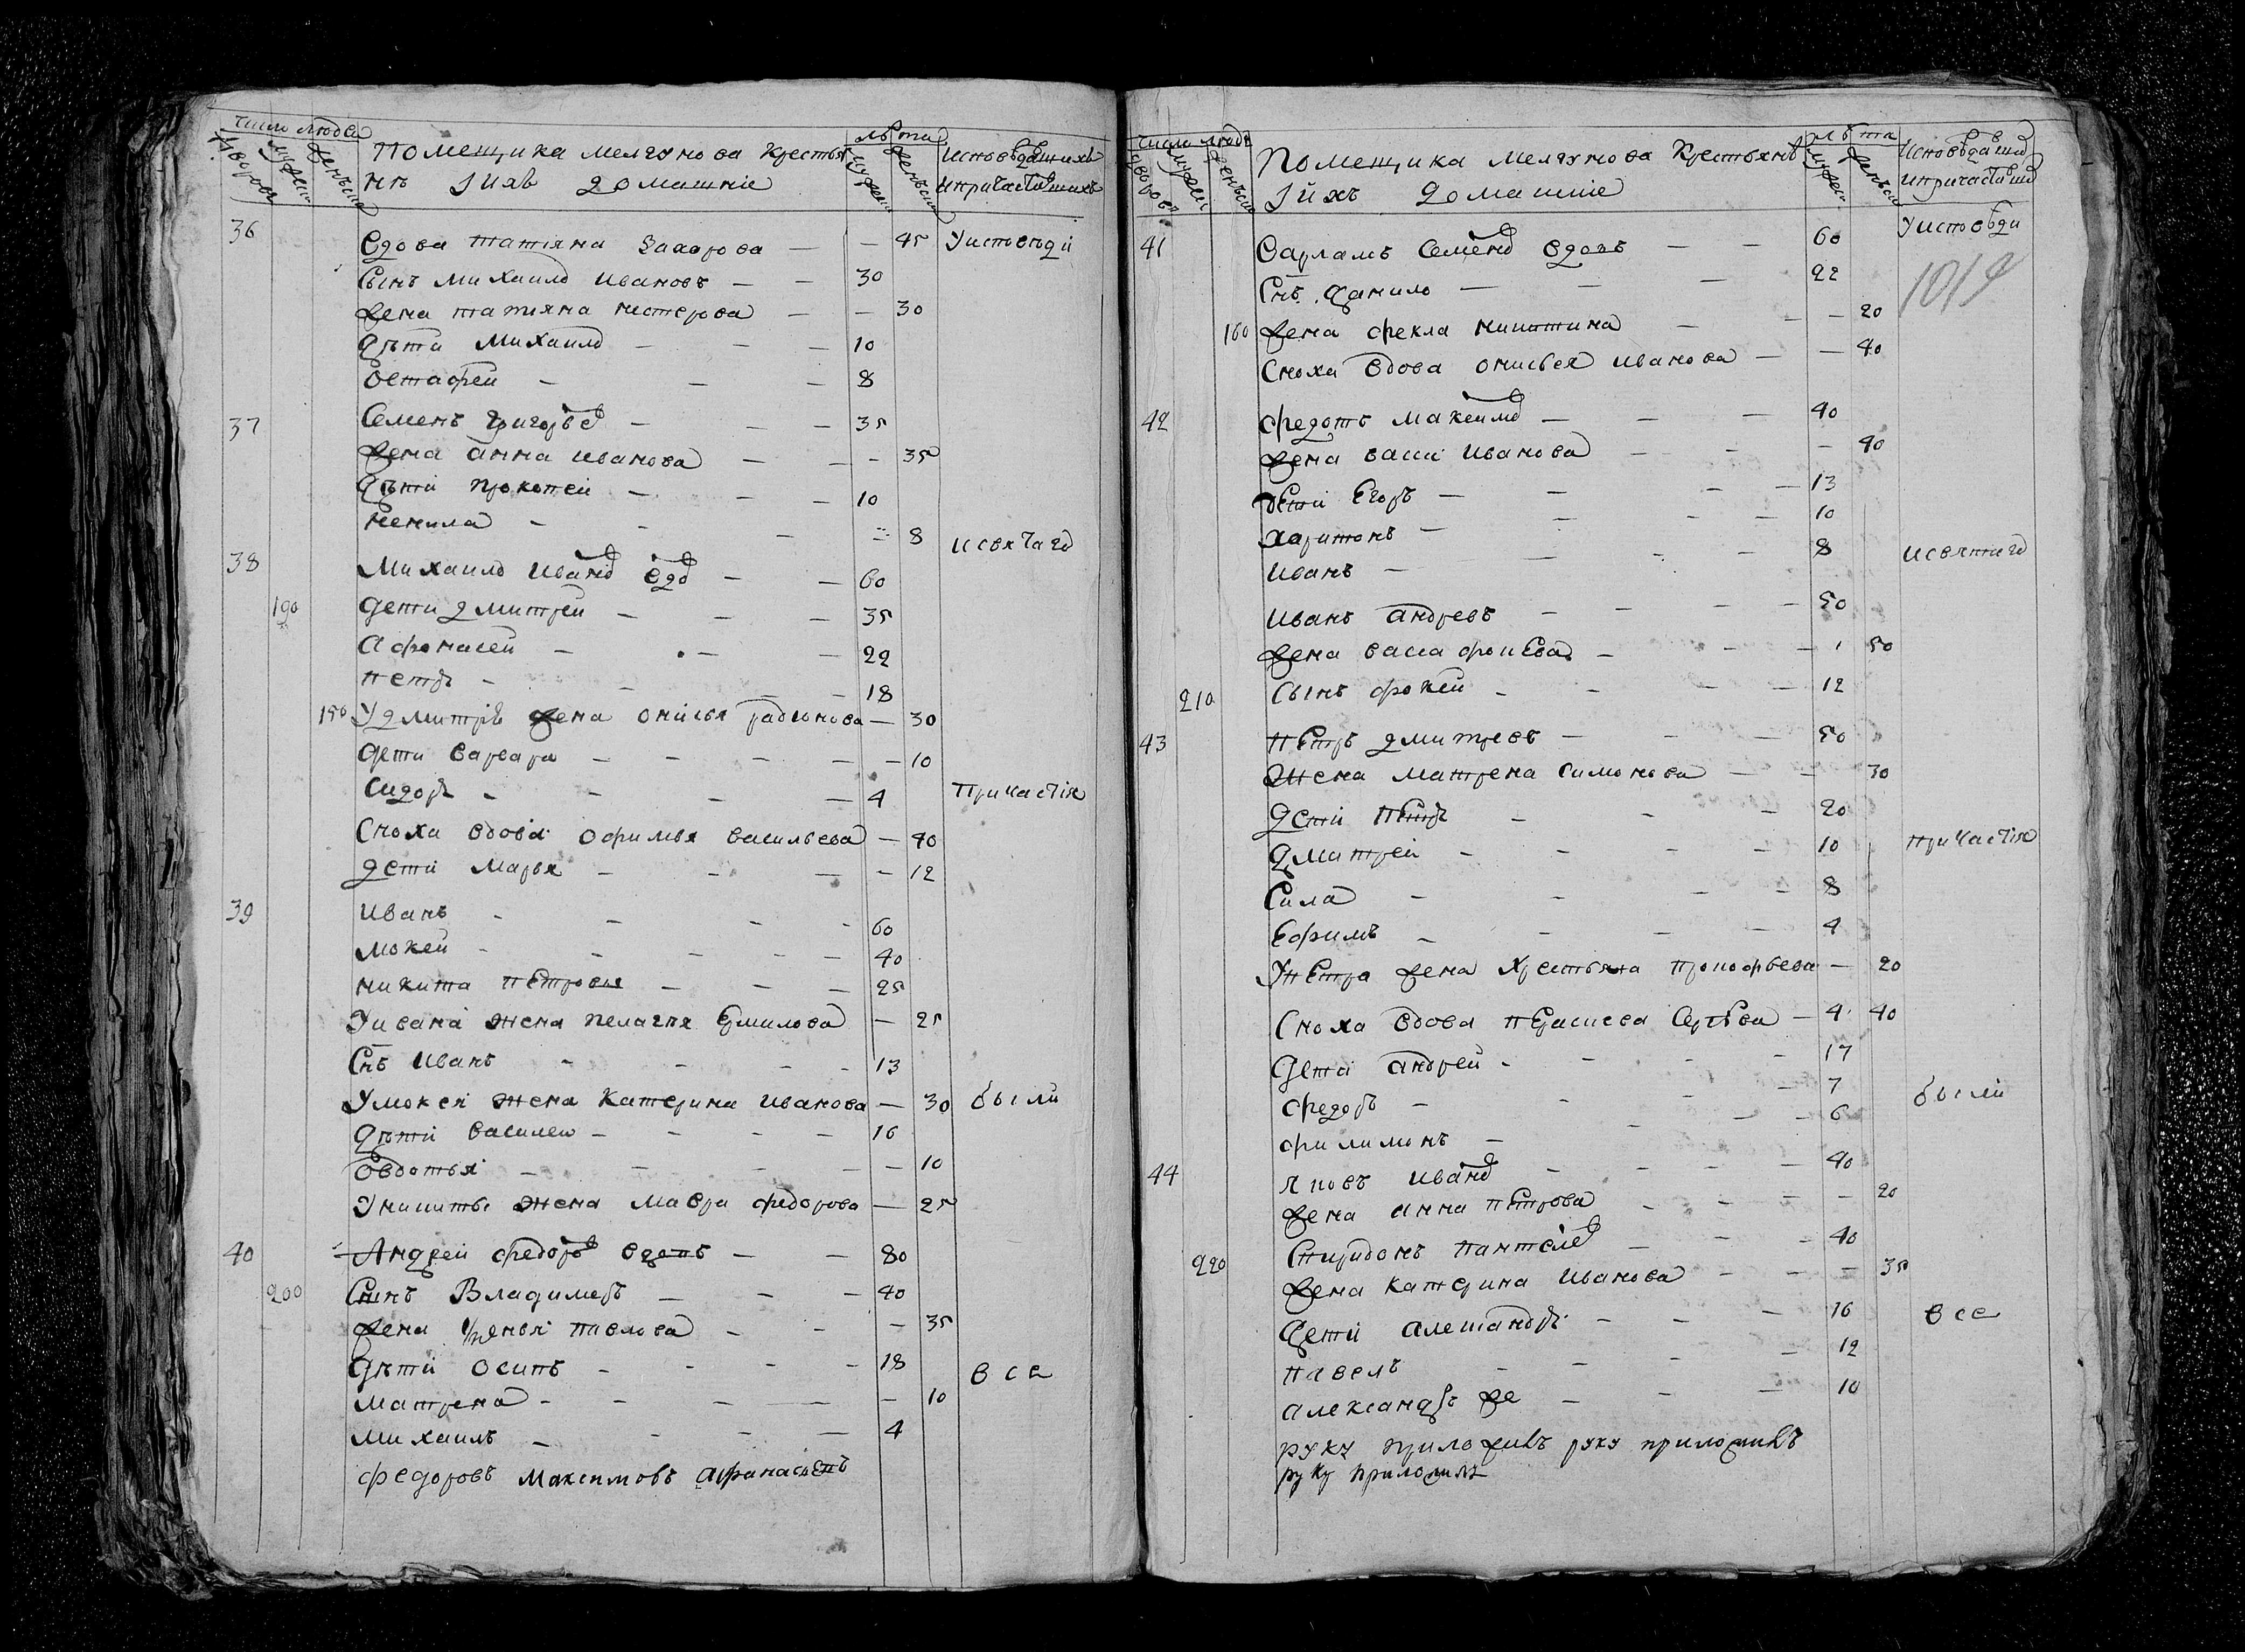 число людей
лѣта
дворовъ
мужеска
женъска
Помещика мелгунова крестья
нъ Iихъ домашніе
мужеска
женъска
исповѣдашихъ
ипричастившихъ
36 Вдова татіяна захарова — — 45 У исповѣди
Сынъ михаило ивановъ — — 30
жена татіяна нестерова — — 30
дѣти михаило — — — 10
Остафеи — — — 8
37 Семенъ григорьев — — — 35
жена анна иванова — — — 35
дѣти прокопеи — — — 10
ненила — — — 8
исвятаго
38 Михаило иванов вдов — — 60
190 дети дмитреи — — — 35
Афонасеи — — — 22
петръ — — — 18
150 У дмитрѣ жена онисья радионова — 30
дети варвара — — — — — 10
Сидоръ — — — — 4 причастія
Сноха вдова офимья васильева — 40
дети марья — — — — 12
39 иванъ — — — 60
мокеи — — — — — 40
никита петровы — — — 25
У ивана жена пелагея Ермилова — 25
Снъ иванъ — — — — 13
У мокея жена катерина иванова — 30 были
дѣти василеи — — — — 16
Овдотья — — — — — 10
У никиты жена мавра федорова — 25
40 Андреи федоров вдовъ — — 80
200 Сынъ Владимеръ — — — 40
жена павлова — — — 35
дѣти осипъ — — — — 18
все
матрена — — — — — 10
михаилъ — — — — 4
федоровъ максимовъ афанасьевъ
число людей
лѣта
дворовъ
мужеска
женъска
Помещика мелгунова крестьянъ
Iихъ домашніе
мужеска
женъска
исповѣдавших
ипричастивших
У исповѣди
41 Варламъ Семенов вдовъ — — 60
1019
Снъ данило — — — 22
160 жена фекла никитина — — — 20
Сноха вдова онисья иванова — — 40
42 федотъ максимов — — — 40
жена васи иванова — — — 40
дети Егоръ — — — — 13
харитонъ — — — — 10
иванъ — — — — 8
исвятаго
иванъ андревъ — — — — 50
жена васса фокѣва — — — 50
210 Сынъ фокеи — — — — 12
43 петръ дмитревъ — — — 50
жена матрена симонова — — 30
дети петръ — — — 20
дмитреи — — — — 10
причастія
Сила — — — — 8
Ефимъ — — — — 4
У петра жена хрестьяна прокофьева — 20
Сноха вдова Сергѣва — 40
дети андреи — — — — 17
федоръ — — — — 7
были
филимонъ — — — — 6
44 яковъ иванов — — — — 40
жена анна петрова — — — — 20
Спиридонъ пантелев — — — 40
220 жена катерина иванова — — — 35
дети алешандръ — — — 16
все
павелъ — — — 12
александръ же — — — 10
руку приложилъ руку приложилъ
руку приложилъ